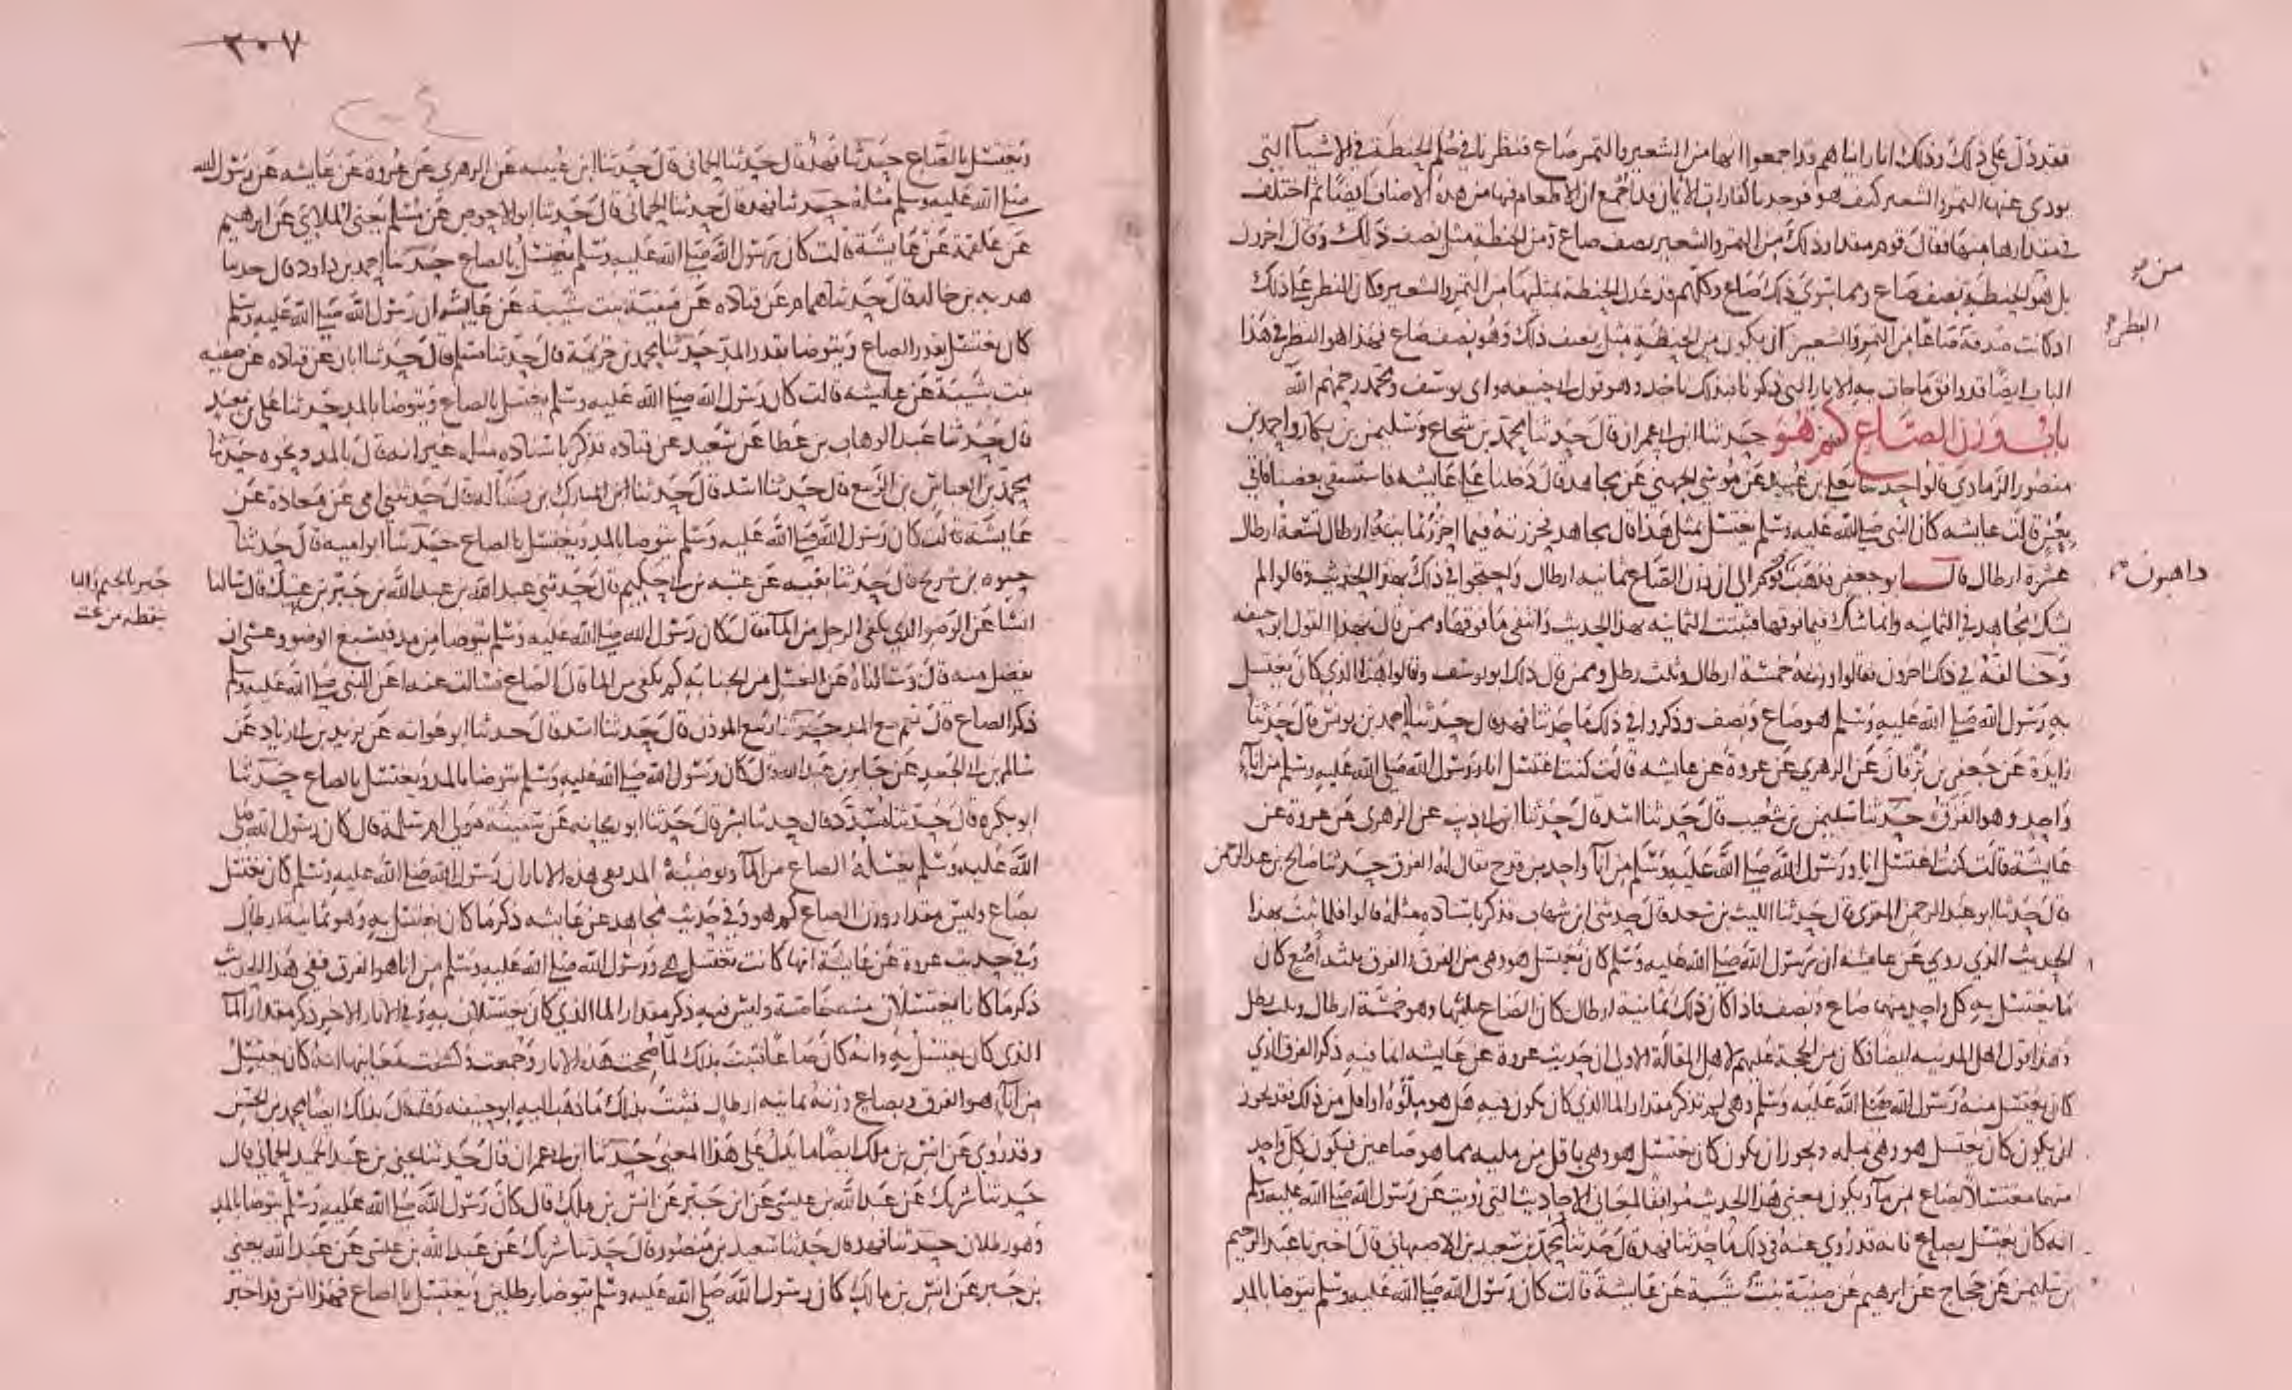 فقد دل على ذلك وذلك انا رايناهم قد اجمعوا انها من الشعير والتمر صاع فنظرنا في حكم الحنطة في الاشيآ التي
يودى عنها التمر والشعير كيف هو فوجدنا كفارات الايمان قد اجمع ان الاطعام فيها من هذه الاصناف ايضًا ثم اختلف
في مقدارها منها فقال قوم مقدار ذلك من التمر والشعير نصف صاع ومن الحنطة مثل نصف ذلك وقال اخرون
بل هو من الحنطة نصف صاع ومما سوى ذلك صاع وكلهم قد عدل الحنطة بمثليها من التمر والشعير وكان النظر على ذلك
اذ كانت صدقة صاعًا من التمر والشعير ان يكون من الحنطة مثل نصف ذلك وهو نصف صاع فهذا هو النظر في هذا
الباب ايضًا قد وافق ما جات به الاثار التي ذكرنا فبذلك ناخذ وهو قول ابي حنيفه وابي يوسف ومحمد رحمهم الله
باب وزن الصاع كم هو حدثنا ابن ابي عمران قال حدثنا محمد بن شجاع وسليمن بن بكار واحمد بن
منصور الرمادي قالوا حدثنا يعلى بن عبيد عن موسى الجهني عن مجاهد قال دخلنا على عايشه فاستسقى بعضنا فاتي
بعس قالت عايشه كان النبي صلى الله عليه وسلم يغتسل بمثل هذا قال مجاهد فحزرته فيما احزر ثمانية ارطال تسعة ارطال
عشرة ارطال قال ابو جعفر فذهب قوم الى ان وزن الصاع ثمانيه ارطال واحتجوا في ذلك بهذا الحديث وقالوا لم
يشك مجاهد في الثمانيه وانما شك فيما فوقها فثبتت الثمانيه بهذا الحديث وانتفى ما فوقها وممن قال بهذا القول ابو حنيفه
وخالفه في ذلك اخرون فقالوا وزنه خمسة ارطال وثلث رطل وممن قال ذلك ابو يوسف وقالوا هذا الذي كان يغتسل
به رسول الله صلى الله عليه وسلم هو صاع ونصف وذكروا في ذلك ما حدثنا فهد قال حدثنا احمد بن يونس قال حدثنا
زايدة عن جعفر بن برقان عن الزهري عن عروة عن عايشه قالت كنت اغتسل انا ورسول الله صلى الله عليه وسلم من انآء
واحد وهو الفرق حدثنا سليمن بن شعيب قال حدثنا اسد قال حدثنا ابن ابي ذيب عن الزهري عن عروة عن
عايشة قالت كنت اغتسل انا ورسول الله صلى الله عليه وسلم من انآ واحد من قدح يقال له الفرق حدثنا صالح بن عبد الرحمن
قال حدثنا ابو عبد الرحمن المقرى قال حدثنا الليث بن سعد قال حدثني ابن شهاب فذكر باسناده مثله قالوا فلما ثبت بهذا
الحديث الذي روي عن عايشه ان رسول الله صلى الله عليه وسلم كان يغتسل هو وهي من الفرق والفرق ثلثة اصع كان
ما يغتسل به كل واحد منهما صاع ونصف فاذا كان ذلك ثمانية ارطال كان الصاع ثلثيها وهو خمسة ارطال وثلث رطل
وهذا قول اهل المدينه ايضًا فكان من الحجة عليهم لاهل المقالة الاولى ان حديث عروة عن عايشه انما فيه ذكر الفرق الذي
كان يغتسل منه رسول الله صلى الله عليه وسلم وهي لم تذكر مقدار الما الذي كان يكون فيه هل هو ملؤه او اقل من ذلك فقد يجوز
ان يكون كان يغتسل هو وهي بمليه ويجوز ان يكون كان يغتسل هو وهي باقل من مليه مما هو صاعين فيكون كل واحد
منهما مغتسلًا بصاع من مآ ويكون معنى هذا الحديث موافقًا لمعاني الاحاديث التي رويت عن رسول الله صلى الله عليه وسلم
انه كان يغتسل بصاع فانه قد روي عنه في ذلك ما حدثنا فهد قال حدثنا محمد بن سعيد بن الاصبهاني قال اخبرنا عبد الرحيم
بن سليمن عن حجاج عن ابرهيم عن صفية بنت شيبة عن عايشة قالت كان رسول الله صلى الله عليه وسلم يتوضا بالمد
من
النظر
ذاهبون
٣٠٧
ويغتسل بالصاع حدثنا فهد قال حدثنا الحماني قال حدثنا ابن عيينه عن الزهري عن عروة عن عايشه عن رسول الله
صلى الله عليه وسلم مثله حدثنا فهد قال حدثنا الحماني قال حدثنا ابو الاحوص عن مسلم يعني الملايي عن ابرهيم
عن علقمة عن عايشة قالت كان رسول الله صلى الله عليه وسلم يغتسل بالصاع حدثنا احمد بن داود قال حدثنا
هدبه بن خالد قال حدثنا همام عن قتاده عن صفية بنت شيبة عن عايشة ان رسول الله صلى الله عليه وسلم
كان يغتسل بقدر الصاع ويتوضا بقدر المد حدثنا محمد بن خزيمة قال حدثنا مسلم قال حدثنا ابان عن قتاده عن صفيه
بنت شيبة عن عايشه قالت كان رسول الله صلى الله عليه وسلم يغتسل بالصاع ويتوضا بالمد حدثنا علي بن معبد
قال حدثنا عبد الوهاب بن عطا عن سعيد عن قتاده فذكر باسناده مثله غير انه قال بالمد ونحوه حدثنا
محمد بن العباس بن الربيع قال حدثنا اسد قال حدثنا ابن المبارك بن فضاله قال حدثتني امي عن معاذة عن
عايشة قالت كان رسول الله صلى الله عليه وسلم يتوضا بالمد ويغتسل بالصاع حدثنا ابو اميه قال حدثنا
حيوه بن شريح قال حدثنا بقيه عن عتبه بن ابي حكيم قال حدثني عبد الله بن عبد الله بن جبر بن عتيك قال سالنا
انسًا عن الوضو الذي يكفى الرجل من المآ فقال كان رسول الله صلى الله عليه وسلم يتوضا من مد فيسبغ الوضو وعسى ان
يفضل منه قال وسالناه عن الغسل من الجنابه كم يكفي من الما قال الصاع فسالت عنه اعن النبي صلى الله عليه وسلم
ذكر الصاع قال نعم مع المد حدثنا ربيع الموذن قال حدثنا اسد قال حدثنا ابو عوانه عن يزيد بن ابي زياد عن
سالم بن ابي الجعد عن جابر بن عبد الله قال كان رسول الله صلى الله عليه وسلم يتوضا بالمد ويغتسل بالصاع حدثنا
ابو بكره قال حدثنا مسدد قال حدثنا بشر قال حدثنا ابو ريحانه عن سفينه مولى ام سلمة قال كان رسول الله صلى
الله عليه وسلم يغسله الصاع من المآ ويوضيه المد ففى هذه الاثار ان رسول الله صلى الله عليه وسلم كان يغتسل
بصاع وليس مقدار وزن الصاع كم هو وفي حديث مجاهد عن عايشه ذكر ما كان يغتسل به وهو ثمانية ارطال
وفي حديث عروة عن عايشة انها كانت تغتسل هي ورسول الله صلى الله عليه وسلم من انا هو الفرق ففي هذا الحديث
ذكر ما كانا يغتسلان منه خاصة وليس فيه ذكر مقدار الما الذي كان يغتسلان به وفي الاثار الاخر ذكر مقدار المآ
الذي كان يغتسل به وانه كان صاعًا فثبت بذلك لما صححت هذه الاثار وجمعت وكشفت معانيها انه كان يغتسل
من انآء هو الفرق وبصاع وزنه ثمانيه ارطال فثبت بذلك ما ذهب اليه ابو حنيفه وقد قال بذلك ايضًا محمد بن الحسن
وقد روى عن انس بن ملك ايضًا ما يدل على هذا المعنى حدثنا ابن ابي عمران قال حدثنا يحيى بن عبد الحميد الحماني قال
حدثنا شريك عن عبد الله بن عيسى عن ابن جبر عن انس بن ملك قال كان رسول الله صلى الله عليه وسلم يتوضا بالمد
وهو رطلان حدثنا فهد قال حدثنا سعيد بن منصور قال حدثنا شريك عن عبد الله بن عيسى عن عبد الله يعني
بن جبر عن انس بن مالك كان رسول الله صلى الله عليه وسلم يتوضا برطلين ويغتسل بالصاع فهذا انس قد اخبر
جبر بالجيم والبا
بنقطه من تحت